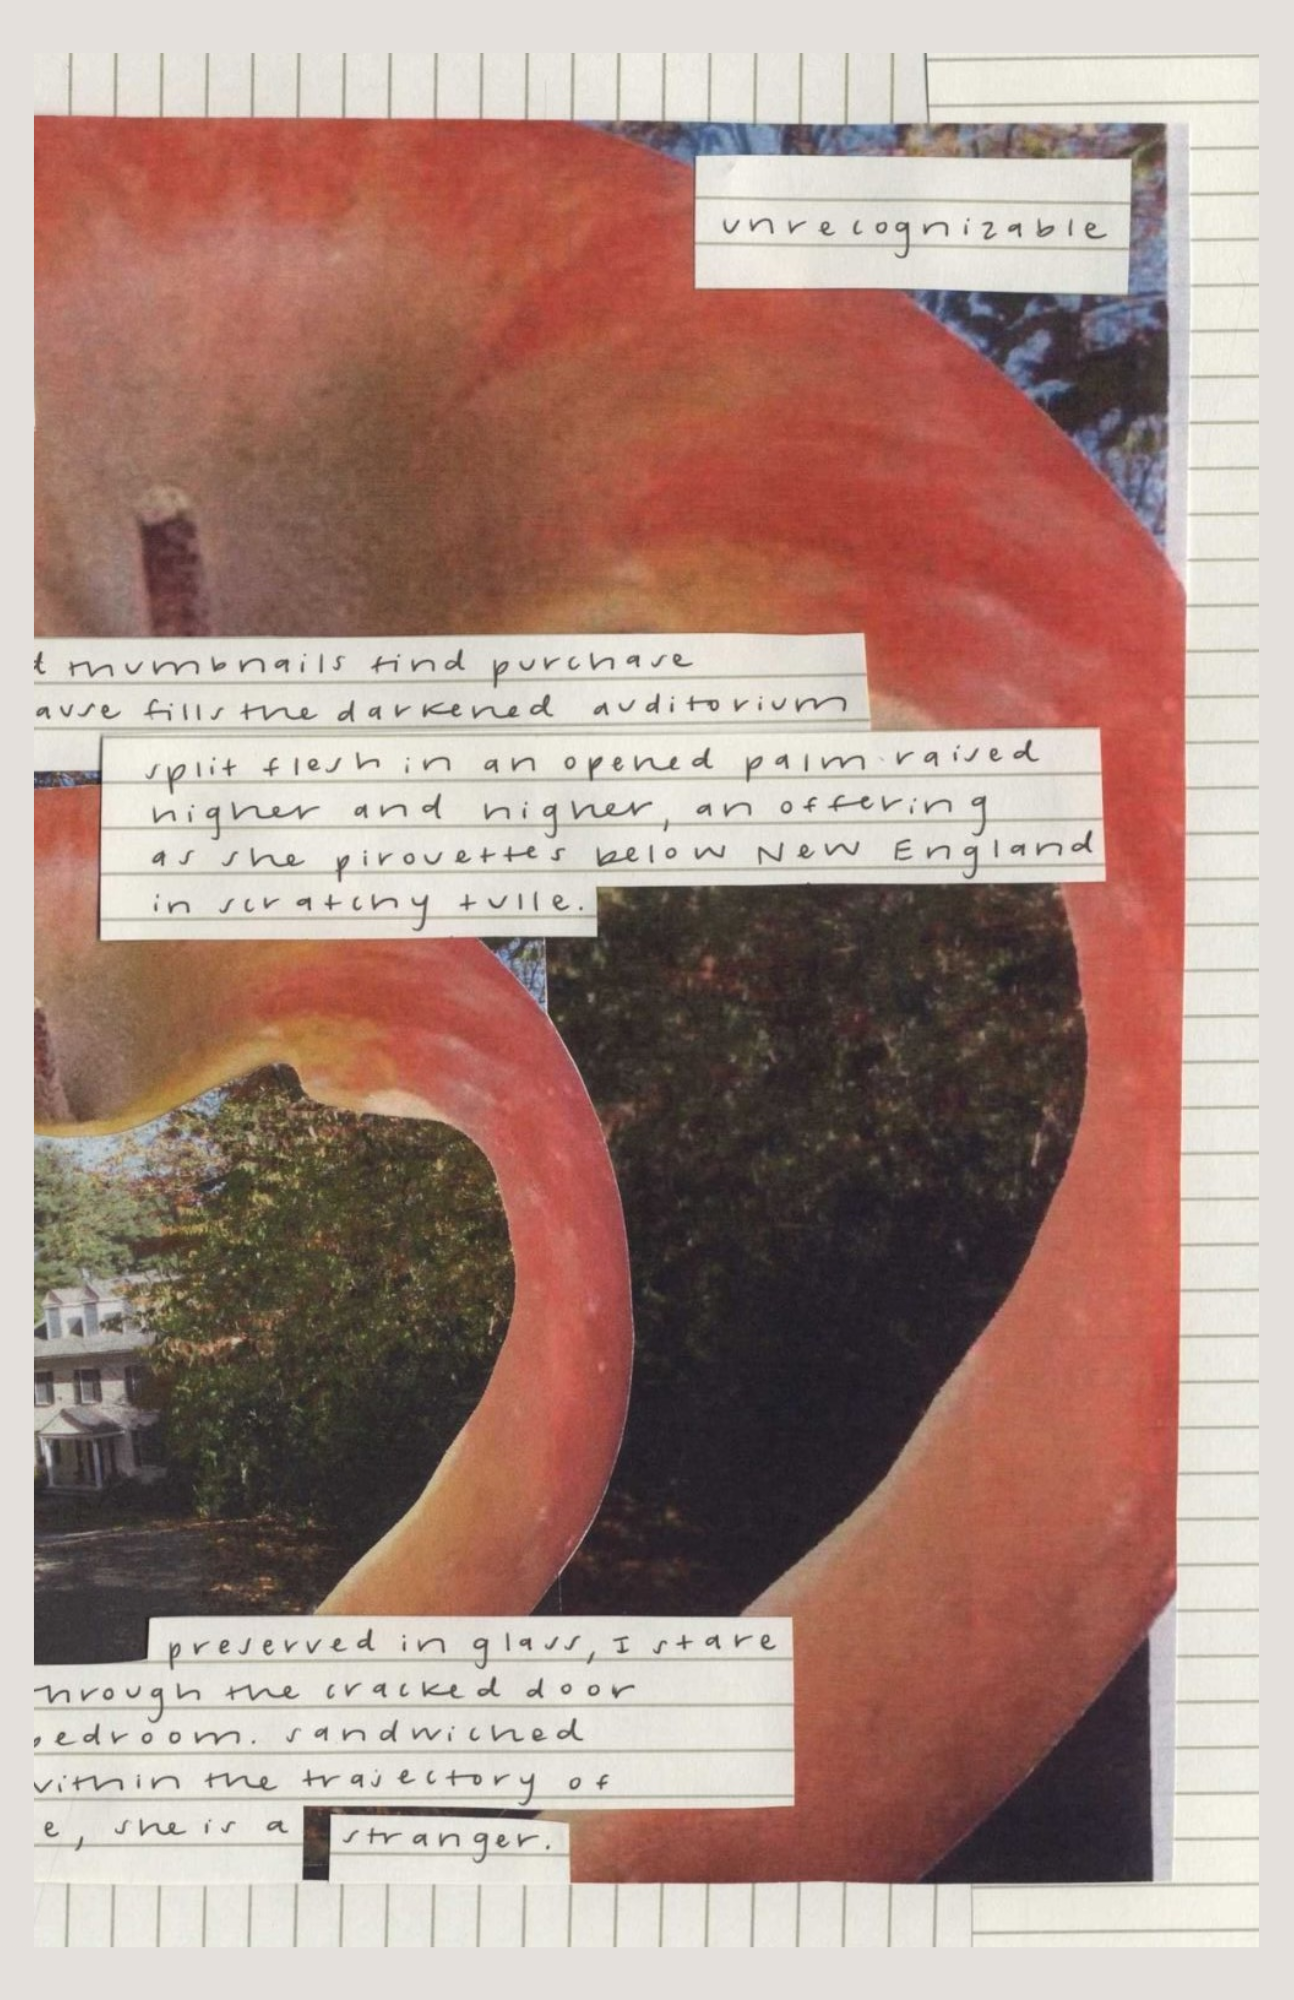 unrecognizable
t thumbnails find purchase
ause fills the darkened auditorium
split flesh in an opened palm raised
higher and higher, an offering
as she pirouettes below New England
in scratchy tulle.
preserved in glass, I stare
hrough the cracked door
edroom. sandwiched
within the trajectory of
e, she is a stranger.